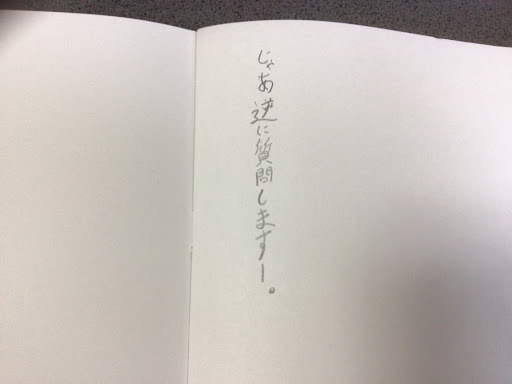 じゃあ逆に質問しますー。